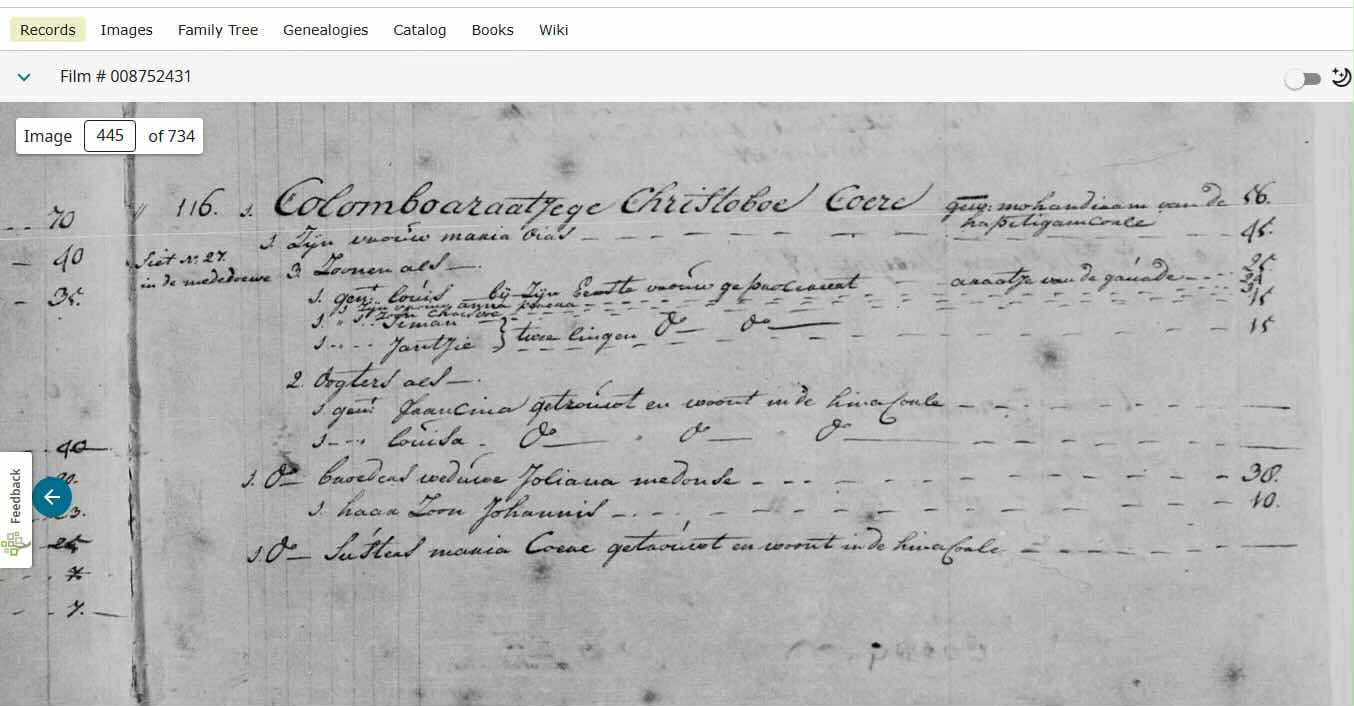 Records Images Family Tree Genealogies Catalog Books Wiki
Film # 008752431
Image 445 of 734
116. 1. Colomboaraatjege Christoboe Coere gew: mohandiram van de 56.
hapitigamcorle
70
1 Zijn vrouw maria dias 45.
40
Siet N: 27.
in de mededorwe
3 Zoonen als
35.
1. gent louis bij Zijn Eerste vrouw geprocureert araatje van de guarde
1 Zijn vrouw anna perera
1 Zoon
1. " " Siman 15
1. Jantjie } twee lingen do do 15
2. dogters als
1 gent francina getrouwt en woont in de hinacorle
1 louisa do do do
40
1. do broeders weduwe Joliana mendonse 38.
1. haar Zoon Johannis 10.
23.
1 do Susters maria Coere getrouwt en woont in de hinacorle
7.
Feedback